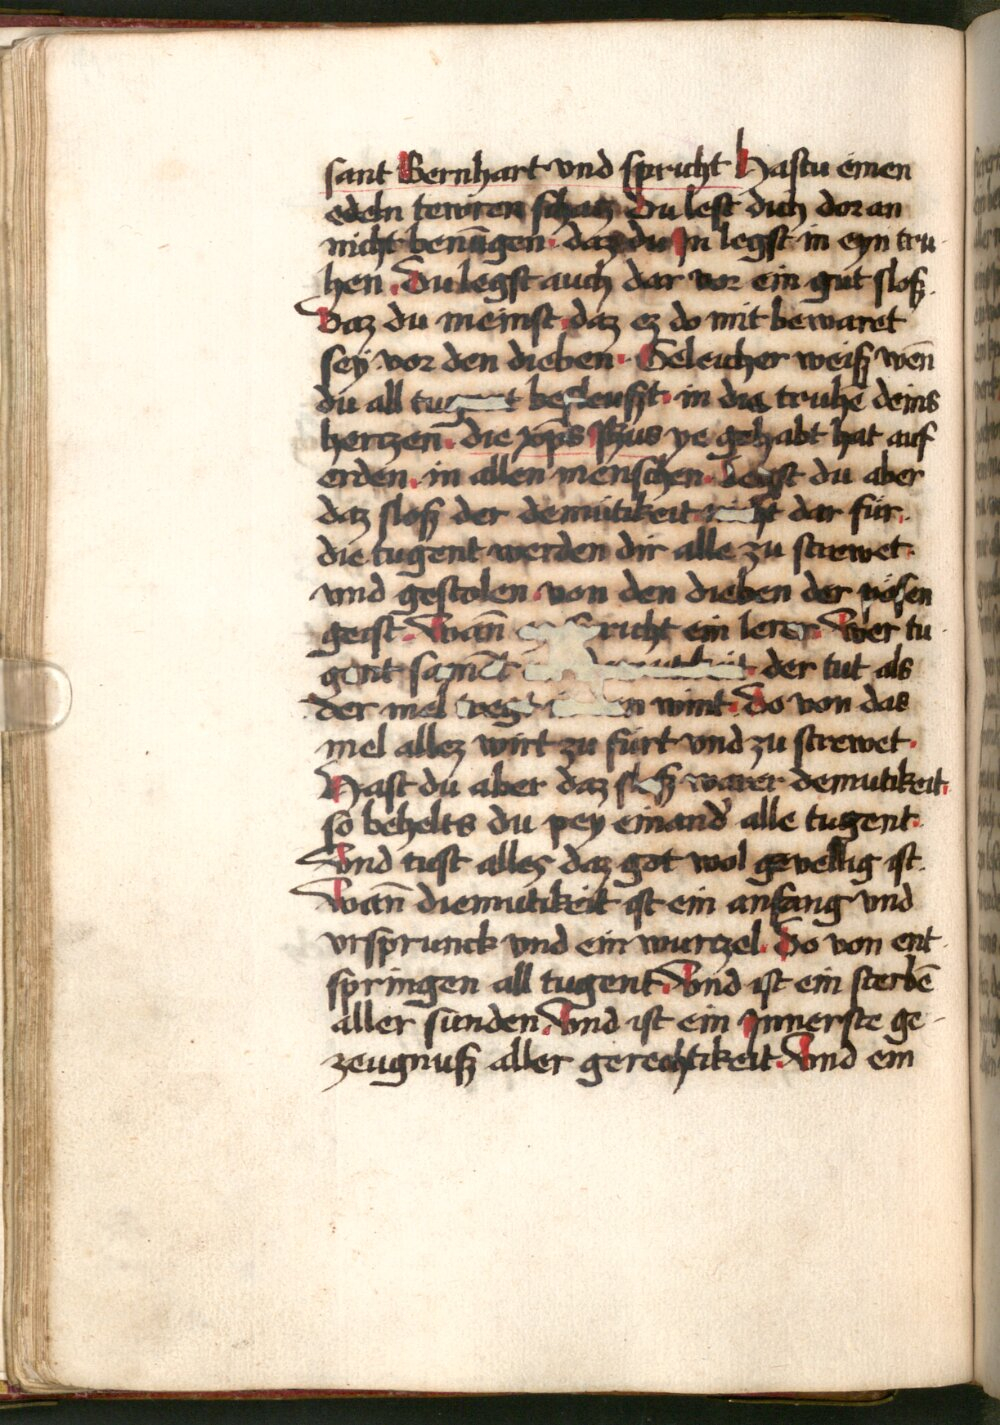 sant Bernhart vnd spricht Hastu einen
edeln tewren schatz Du lest dich dor an
nicht benügen· daz du In legst in eyn tru-
hen. Du legst auch dar vor ein gut sloß.
Daz du meinst daz ez do mit bewaret
sey vor den dieben· Geleicher weiß wen̄
du all besleust· in die truhē deins
hertzen. die xp̄s Jhus ye gehabt hat auf
erden. in allen menschen· Legst du aber
daz sloß der demütikeit dar für.
die tugent werden dir alle zu strewet·
vnd gestolen von den dieben der pösen
geist· Wan̄ ein lerer· Wer tu
gent der tut als
der mel wint· Do von das
mel allez wirt zu fürt vnd zu strewet·
Hast du aber daz sloß warer demutikeit.
so behelts du pey einand' alle tugent·
Vnd tust alles daz got wol gevellig ist·
Wan̄ diemutikeit ist ein anfang vnd
vrsprunck vnd ein wurtzel· Do von ent-
springen all tugent· Vnd ist ein sterbē
aller sünden. Vnd ist ein Innerste ge-
zeugnuß aller gerechtikeit· Vnd ein